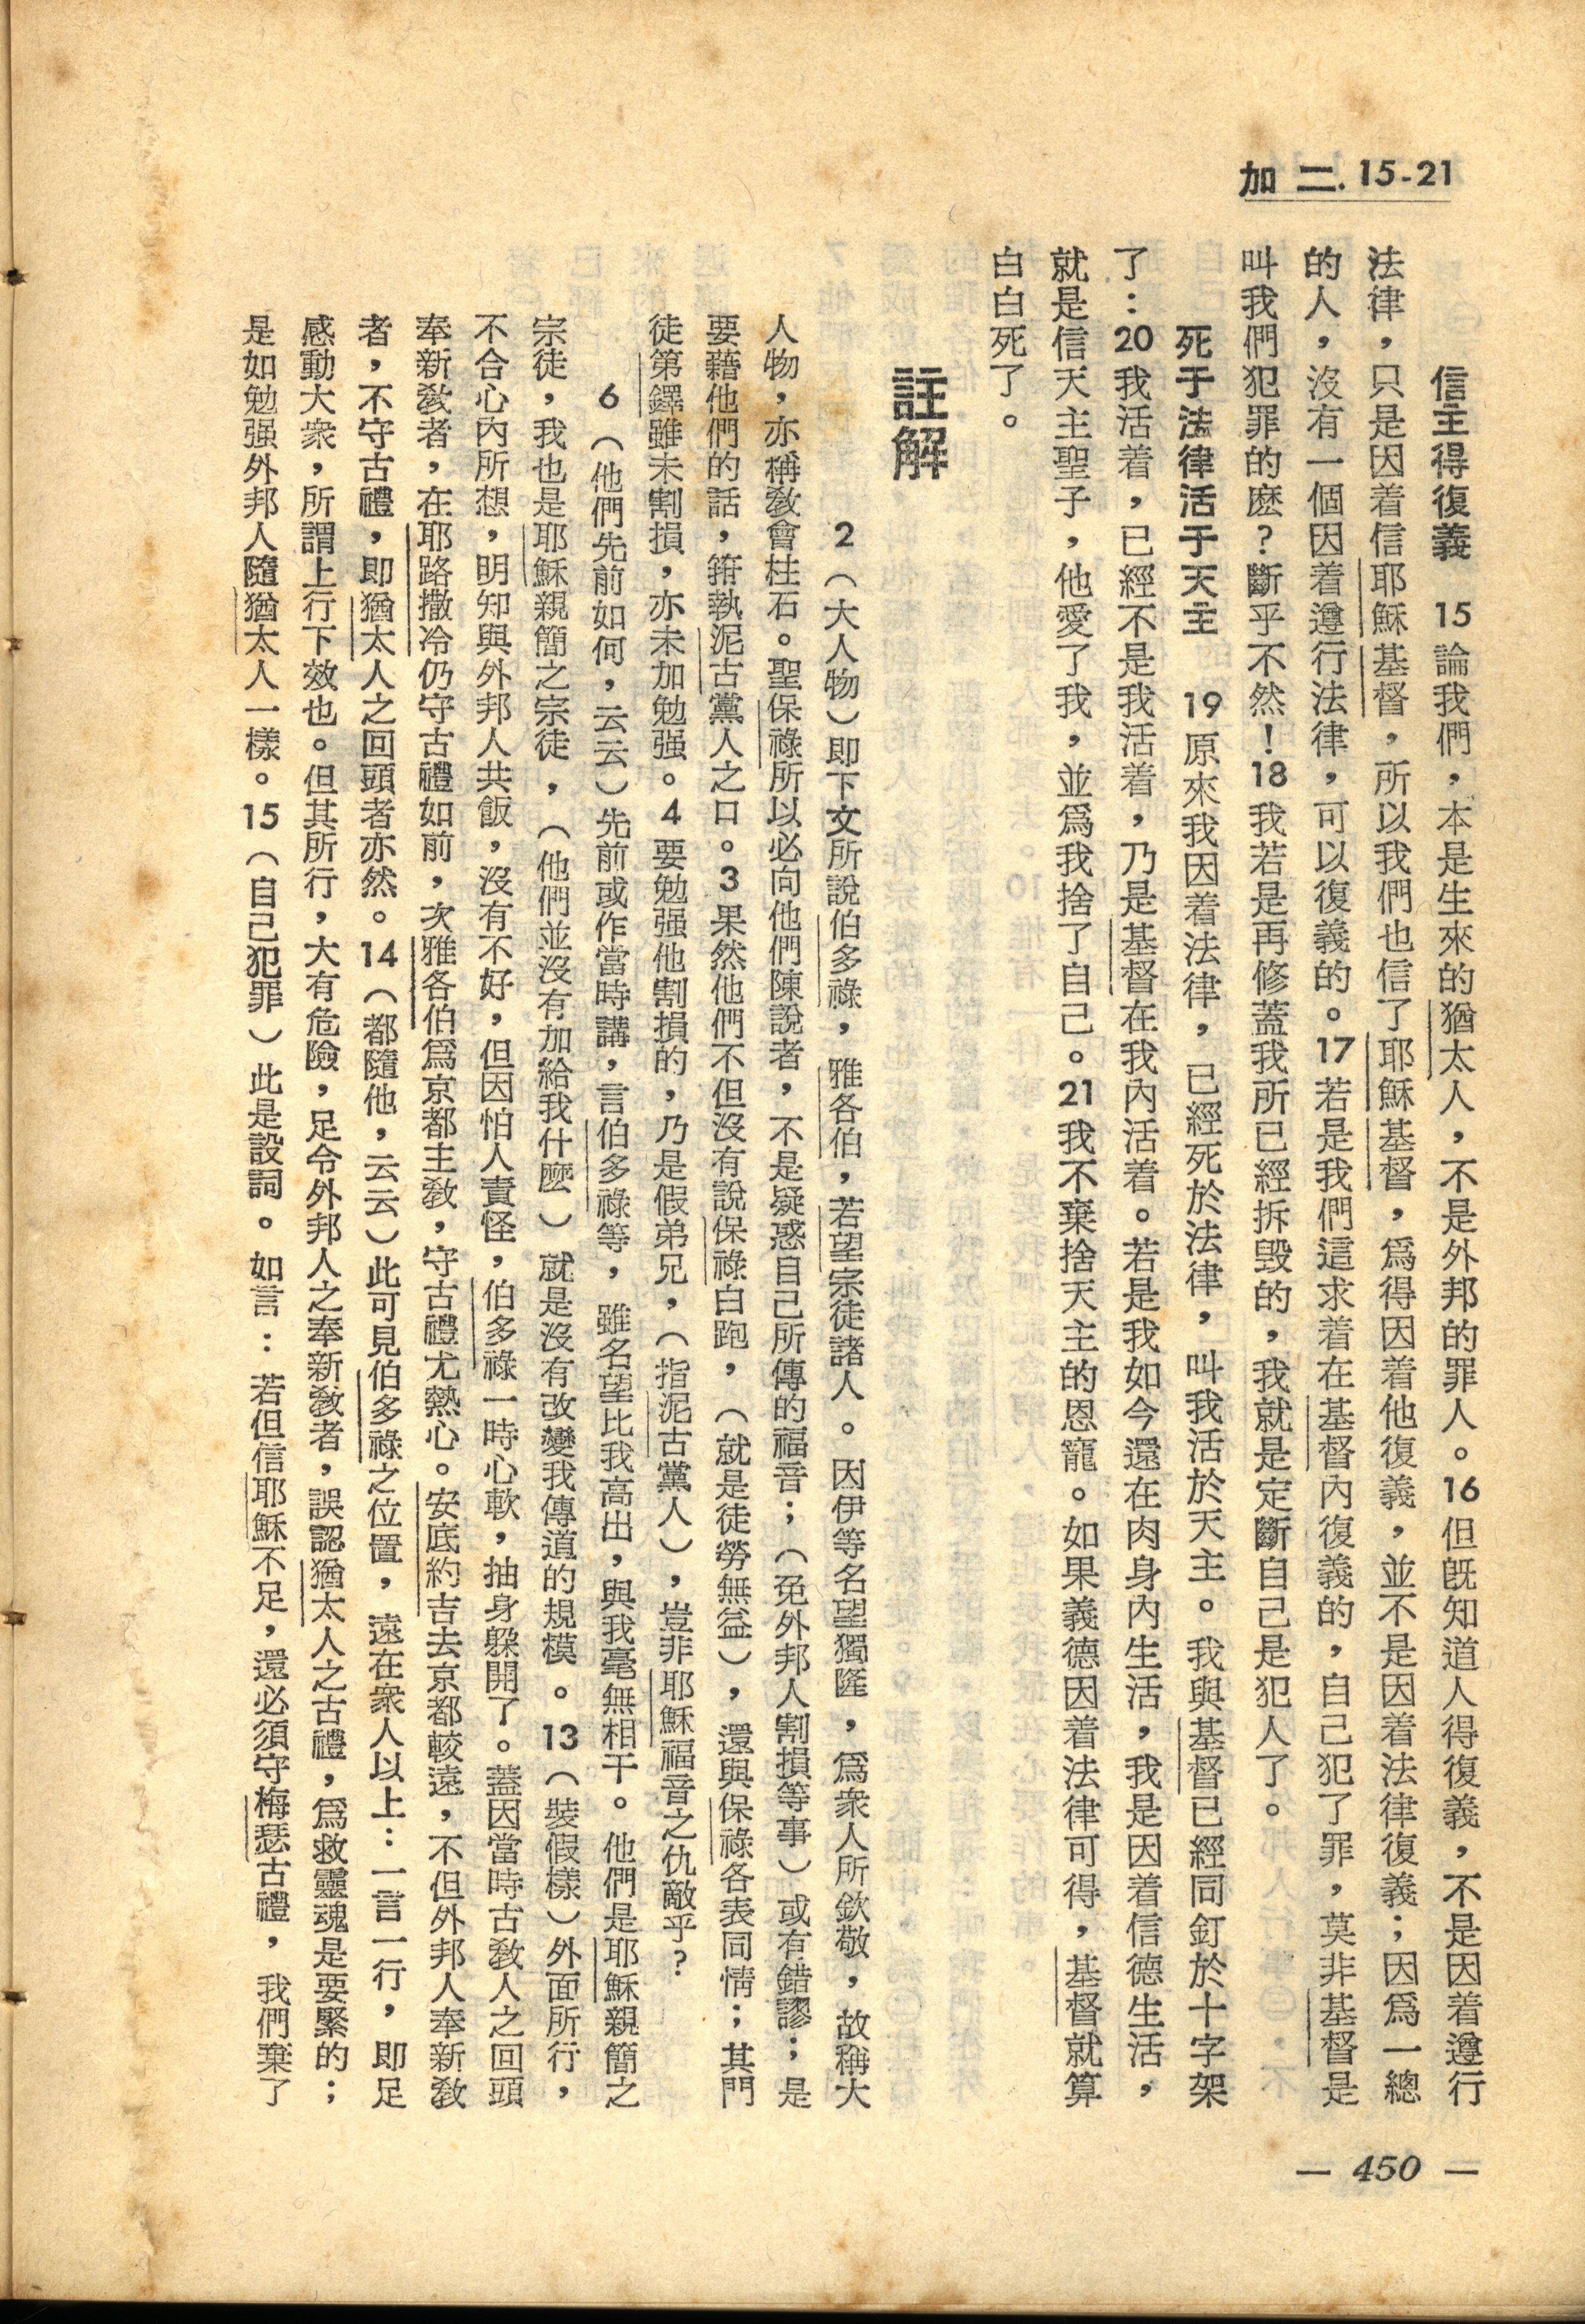 加二. 15-21
信主得復義　15論我們，本是生來的猶太人，不是外邦的罪人。16但旣知道人得復義，不是因着遵行
法律，只是因着信耶穌基督，所以我們也信了耶穌基督，爲得因着他復義，並不是因着法律復義；因爲一總
的人，沒有一個因着遵行法律，可以復義的。17若是我們這求着在基督內復義的，自己犯了罪，莫非基督是
叫我們犯罪的麽？斷乎不然！18我若是再修蓋我所已經拆毀的，我就是定斷自己是犯人了。
死于法律活于天主　19原來我因着法律，已經死於法律，叫我活於天主。我與基督已經同釘於十字架
了：20我活着，已經不是我活着，乃是基督在我內活着。若是我如今還在肉身內生活，我是因着信德生活，
就是信天主聖子，他愛了我，並爲我捨了自己。21我不棄捨天主的恩寵。如果義德因着法律可得，基督就算
白白死了。
註解
2（大人物）即下文所說伯多祿，雅各伯，若望宗徒諸人。因伊等名望獨隆，爲衆人所欽敬，故稱大
人物，亦稱敎會柱石。聖保祿所以必向他們陳說者，不是疑惑自己所傳的福音；（免外邦人割損等事）或有錯謬；是
要藉他們的話，箝執泥古黨人之口。3果然他們不但沒有說保祿白跑，（就是徒勞無益），還與保祿各表同情；其門
徒第鐸雖未割損，亦未加勉强。4要勉强他割損的，乃是假弟兄，（指泥古黨人），豈非耶穌福音之仇敵乎？
6（他們先前如何，云云）先前或作當時講，言伯多祿等，雖名望比我高出，與我毫無相干。他們是耶穌親簡之
宗徒，我也是耶穌親簡之宗徒，（他們並沒有加給我什麽）就是沒有改變我傳道的規模。13（裝假樣）外面所行，
不合心內所想，明知與外邦人共飯，沒有不好，但因怕人責怪，伯多祿一時心軟，抽身躱開了。蓋因當時古敎人之回頭
奉新敎者，在耶路撒冷仍守古禮如前，次雅各伯爲京都主敎，守古禮尤熱心。安底約吉去京都較遠，不但外邦人奉新敎
者，不守古禮，即猶太人之回頭者亦然。14（都隨他，云云）此可見伯多祿之位置，遠在衆人以上：一言一行，即足
感動大衆，所謂上行下效也。但其所行，大有危險，足令外邦人之奉新敎者，誤認猶太人之古禮，爲救靈魂是要緊的；
是如勉强外邦人隨猶太人一樣。15（自己犯罪）此是設詞。如言：若但信耶穌不足，還必須守梅瑟古禮，我們棄了
— 450 —